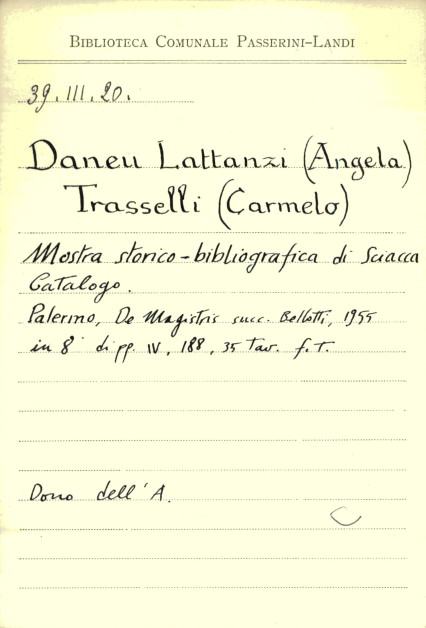 BIBLIOTECA COMUNALE PASSERINI-LANDI
39. III. 20.
Daneu Lattanzi (Angela)
Trasselli (Carmelo)
Mostra storico-bibliografica di Sciacca
Catalogo.
Palermo, De Magistris succ. Bellotti, 1955
in 8° di pp. IV, 188, 35 Tav. f.T.
Dono dell'A.